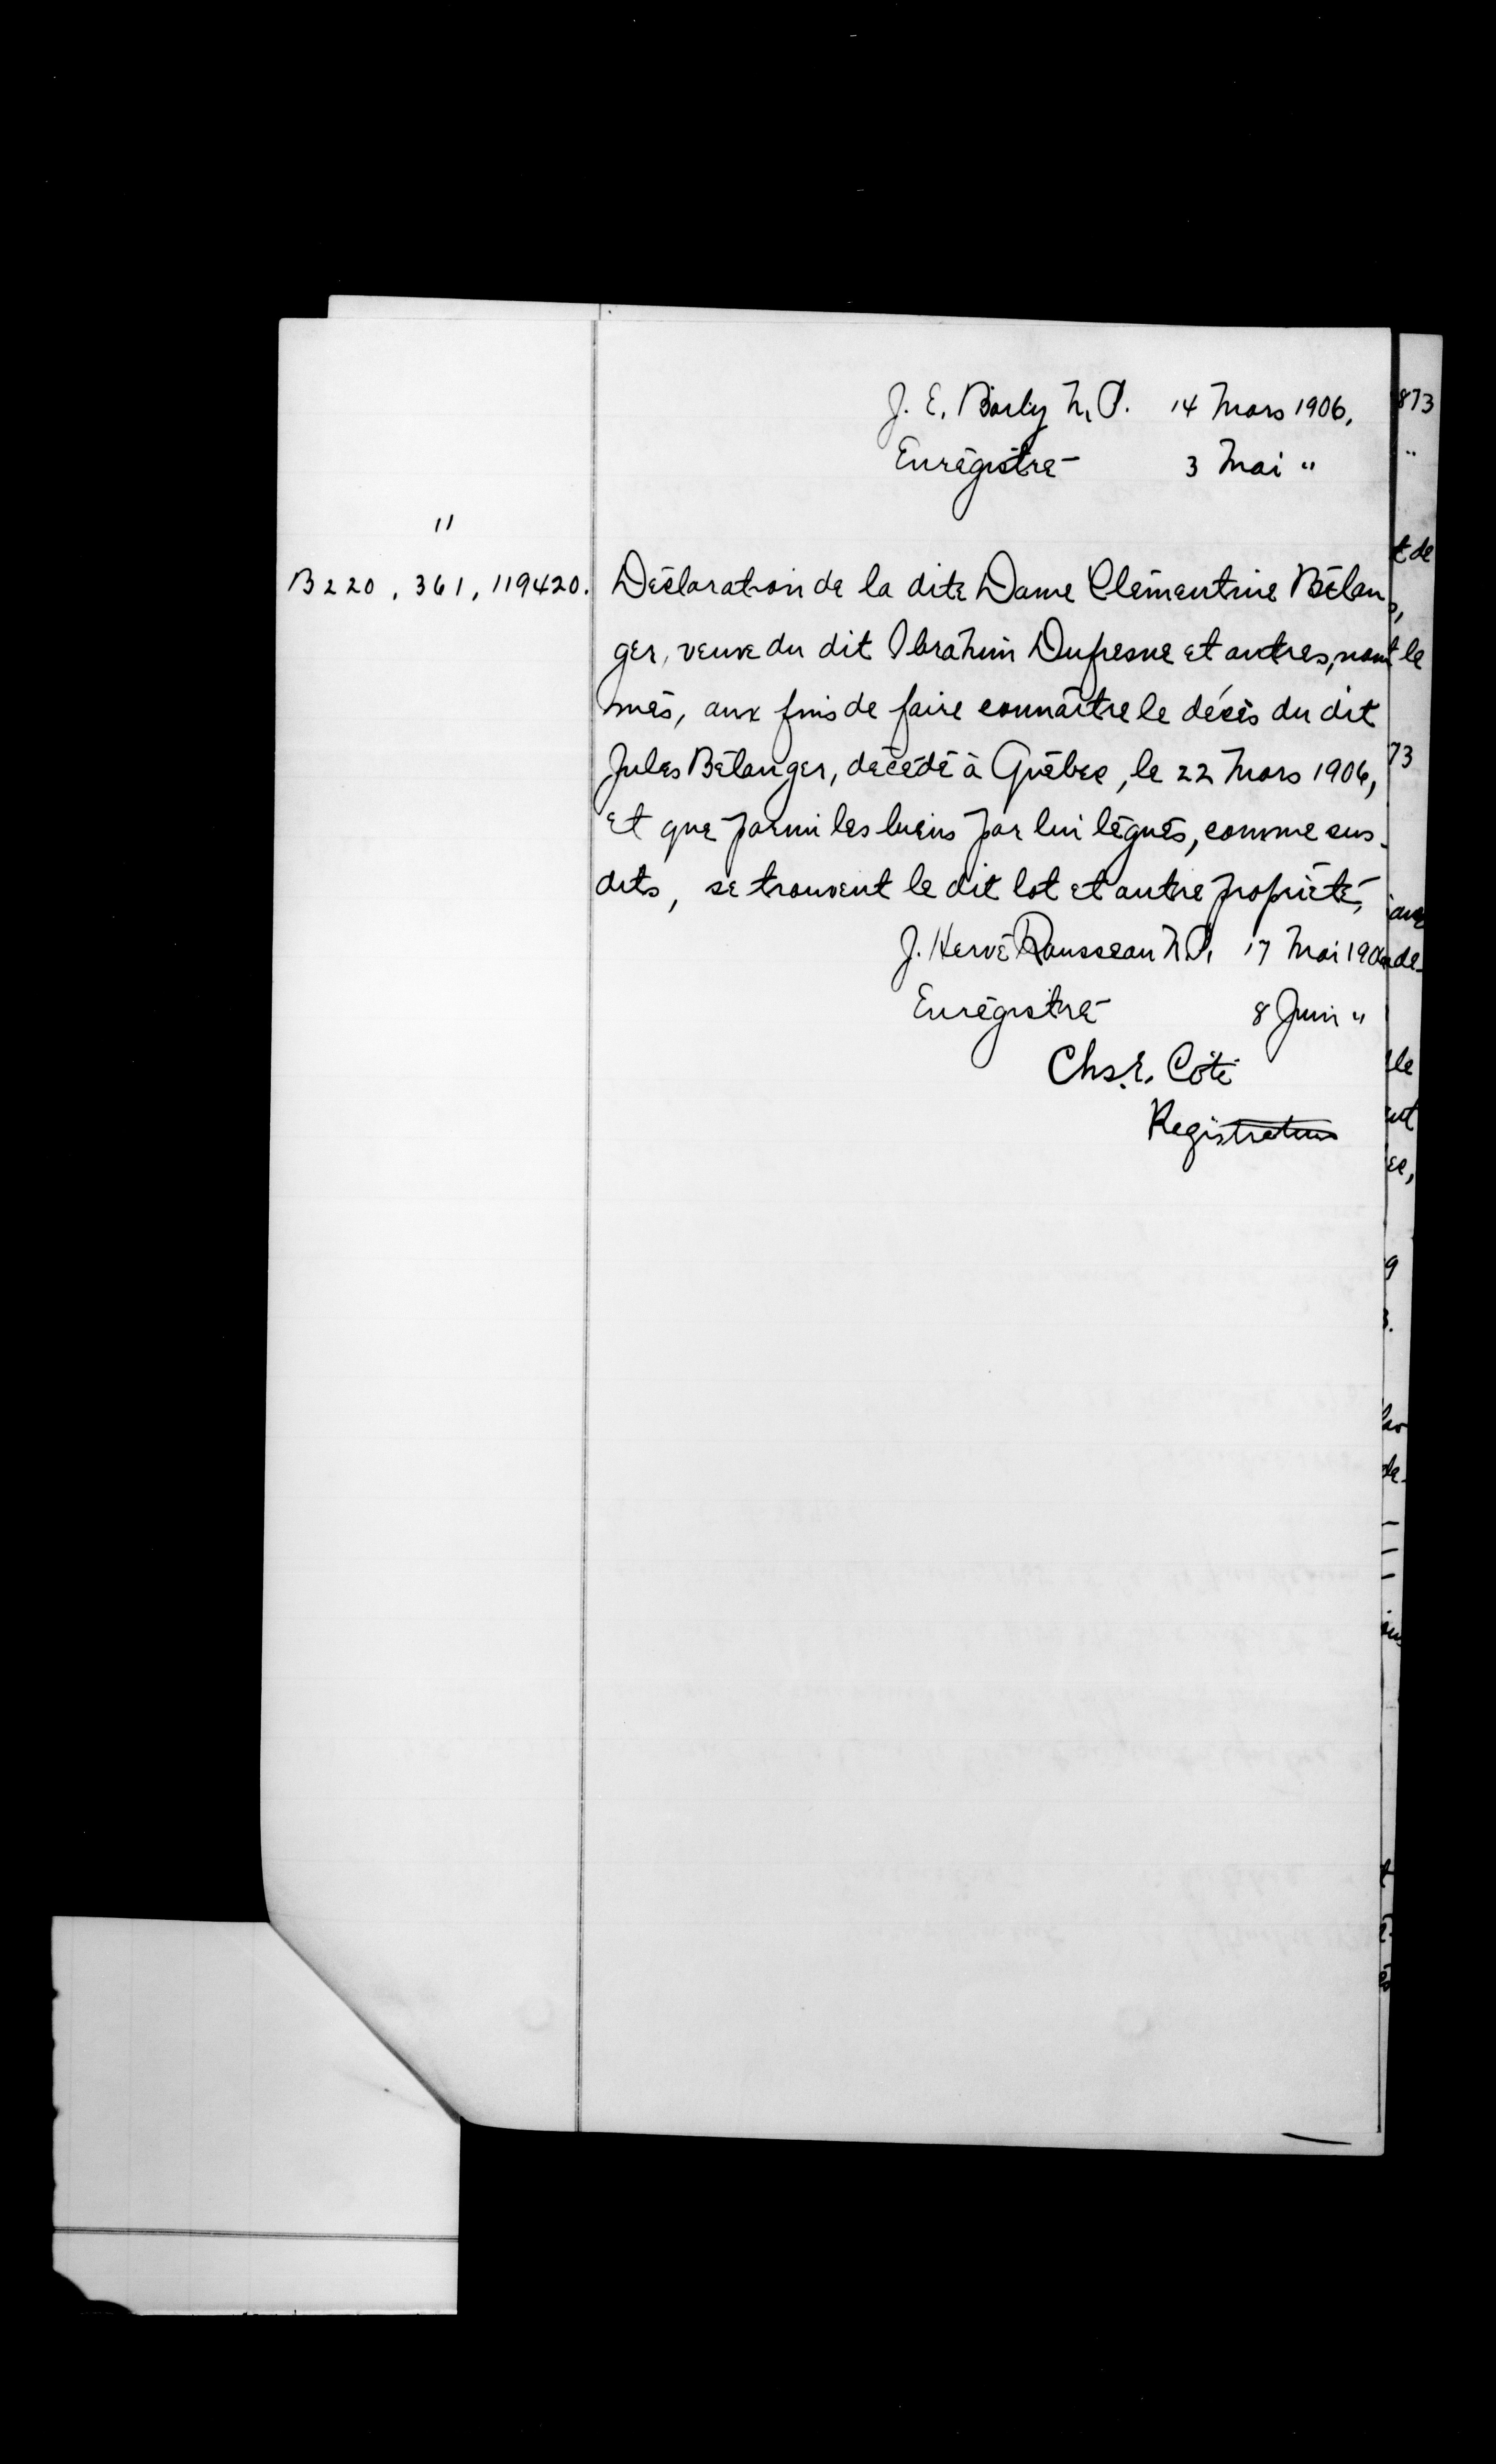 J. E. Boily N. P. 14 Mars 1906.
Enrégistré 3 Mai "
"
B 220, 361, 119420. Déclaration de la dite Dame Clémentine Bélan
ger, veuve du dit Ibrahim Dufresne et autres, nom
més, aux fins de faire connaître le décès du dit
Jules Bélanger, décédé à Québec, le 22 Mars 1906,
et que parmi les biens par lui légués, comme sus-
dits, se trouvent le dit lot et autre propriété,
J. Hervé Rousseau N.P. 17 Mai 190
Enrégistré 8 Juin "
Chs. E. Côté
Registrateur
873
"
t de
le
73
de-
le